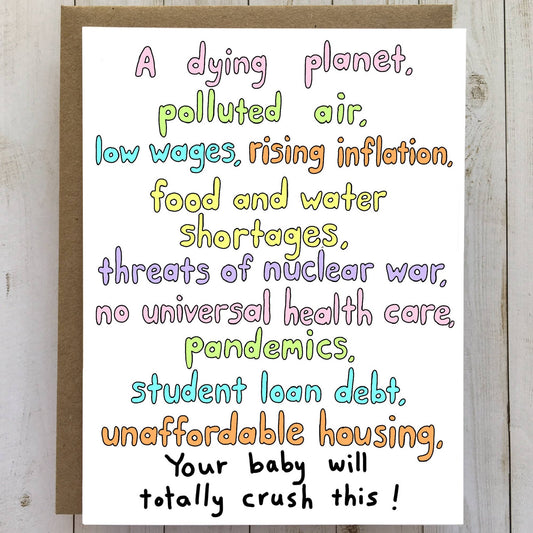 A dying planet,
polluted air,
low wages, rising inflation,
food and water
shortages,
threats of nuclear war,
no universal health care,
pandemics,
student loan debt,
unaffordable housing,
Your baby will
totally crush this!